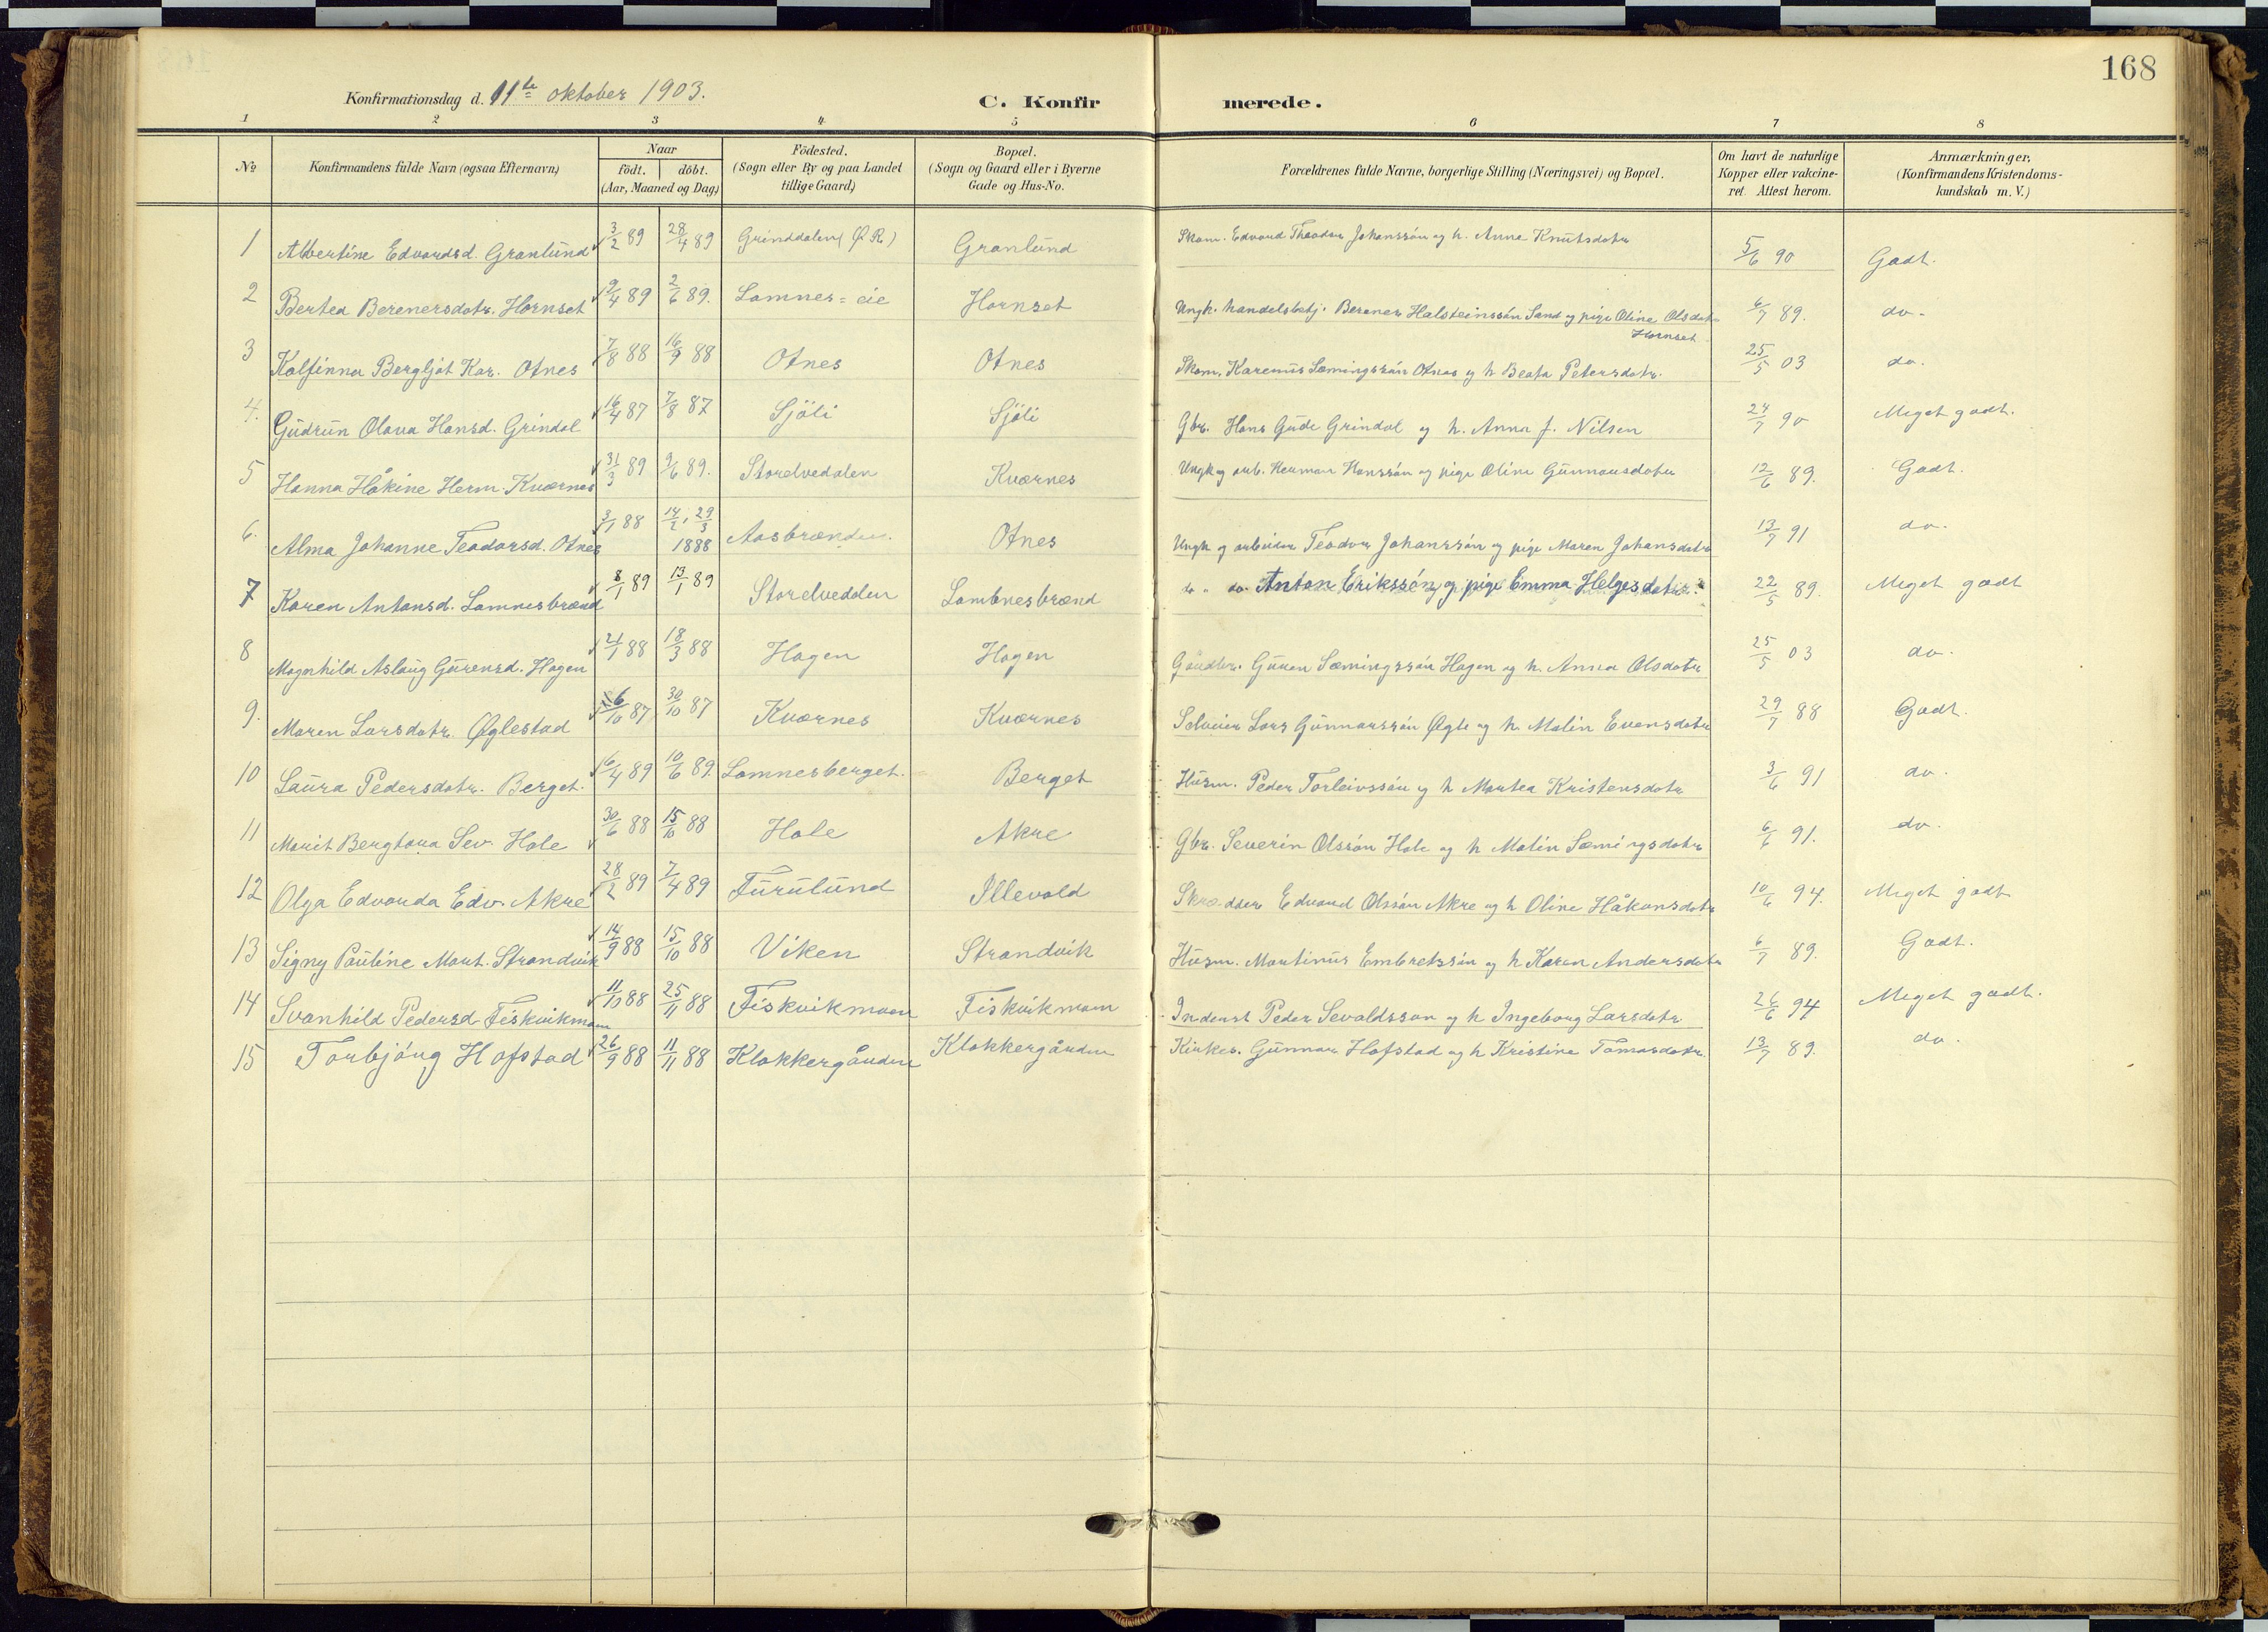 168
Konfirmationsdag d. 11te oktober 1903.
C. Konfirmerede.
1 2 3 4 5 6 7 8
No
Konfirmandens fulde Navn (ogsaa Efternavn)
Naar
födt. döbt.
(Aar, Maaned og Dag)
Födested.
(Sogn eller By og paa Landet
tillige Gaard)
Bopæl.
(Sogn og Gaard eller i Byerne
Gade og Hus-No.
Forældrenes fulde Navne, borgerlige Stilling (Næringsvei) og Bopæl.
Om havt de naturlige
Kopper eller vakcine-
ret. Attest herom.
Anmærkninger.
(Konfirmandens Kristendoms-
kundskab m. V.)
1 Albertine Edvardsd. Granlund 3/2 89 28/4 89 Grinddalen (Ø R) Granlund Skom. Edvard Theodor Johanssön og h. Anne Knutsdatr 5/6 90 Godt.
2 Bertea Berenersdatr. Hornset 9/4 89 2/6 89. Lomnes=eie Hornset Ungk. handelsbetj. Berener Halsteinssön Sand og pige Oline Olsdatr
Hornset 6/7 89. do.
3 Kolfinna Bergljot Kar. Otnes 7/8 88 16/9 88 Otnes Otnes Skom. Karenus Sæmingssön Otnes og h Beata Petersdatr. 25/5 03 do.
4. Gudrun Olava Hansd. Grindal 16/4 87 7/8 87 Sjöli Sjöli Gbr. Hans Gude Grindal og h. Anna J. Nilsen 24/7 90 Meget godt.
5 Hanna Håkine Herm. Kværnes 31/3 89 9/6 89. Storelvedalen Kværnes Ungk og arb. Herman Hanssön og pige Oline Gunnarsdatr 12/6 89. Godt.
6. Alma Johanne Teodorsd. Otnes 3/1 88 14/2, 29/3 1888 Aasbrænden. Otnes Ungk og arbeider Teodor Johanssön og pige Maren Johansdatr 13/7 91 do.
7 Karen Antonsd. Lomnesbrænd 8/1 89 13/1 89 Storelvedden Lombnesbrænd do " do Anton Erikssön og pige Emma Helgesdatr. 22/5 89. Meget godt
8 Magnhild Aslaug Gurensd. Hagen 21/1 88 18/3 88 Hagen Hagen Gåudbr. Guren Sæmingssön Hagen og h. Anna Olsdatr 25/5 03 do.
9. Maren Larsdatr. Øglestad 6/10 87 30/10 87 Kværnes Kværnes Selveier Lars Gunnarssön Øgle og h. Malin Evensdatr 29/7 88 Godt.
10 Laura Pedersdatr. Berget. 16/4 89 10/6 89. Lomnesberget. Berget Husm. Peder Torleivssön og h Martea Kristensdatr 3/6 91 do.
11 Marit Bergtora Sev. Hole 30/6 88 15/10 88 Hole Akre Gbr. Severin Olssön Hole og h Malin Sæmingsdatr 6/6 91. do.
12 Olga Edvarda Edv. Akre 28/2 89 7/4 89 Furulund Illevold Skrædder Edvard Olssön Akre og h Oline Håkonsdatr 10/6 94. Meget godt
13 Signy Pauline Mart. Strandvik 14/9 88 15/10 88 Viken Strandvik Husm. Martinus Embretssön og h Karen Andersdatr 6/7 89. Godt.
14 Svanhild Pedersd Fiskvikmoen 11/10 88 25/11 88 Fiskvikmoen Fiskvikmoen Inderst Peder Sevaldsson og h Ingeborg Larsdatr 26/6 94 Meget godt.
15 Torbjörg Hofstad 26/9 88 11/11 88 Klokkergården Klokkergården Kirkes. Gunnar Hofstad og h Kristine Tomasdatr. 13/7 89. do.